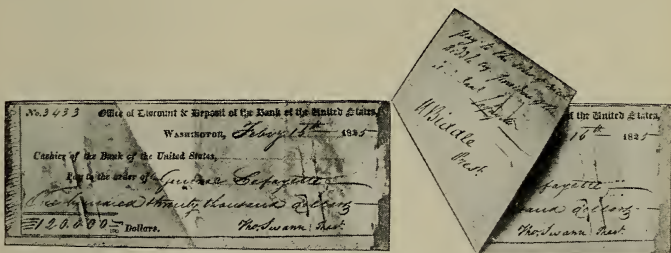 No. 3433 Office of Discount & Deposit of the Bank of the United States,
WASHINGTON, Feby. 16th 1825
Cashier of the Bank of the United States,
Pay to the order of General Lafayette
One hundred twenty thousand dollars
120.000 Dollars. Tho. Swann Prest.
pay to the order of
N Biddle
Prest.
of the United States,
16th 1825
fayette
sand dollars
Tho. Swann Prest.